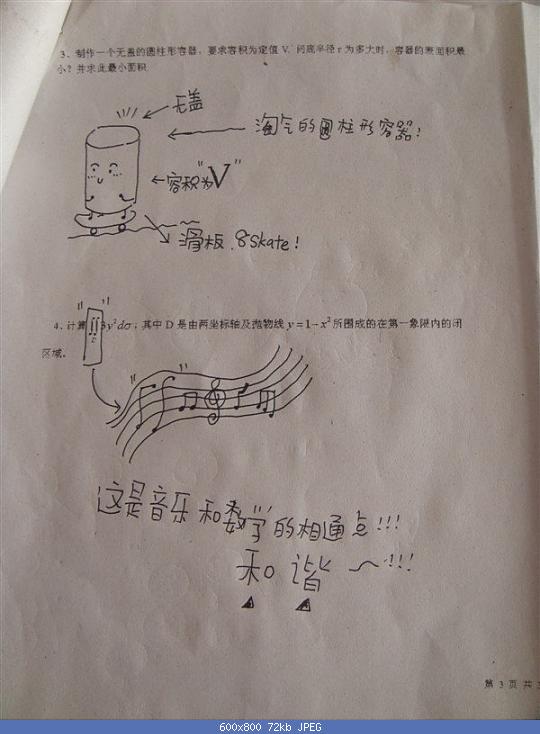 3、制作一个无盖的圆柱形容器，要求容积为定值 V，问底半径 r 为多大时，容器的表面积最
小？并求此最小面积
无盖
淘气的圆柱形容器！
容积为"V"
滑板 Skate!
4、计算∬3y²dσ，其中 D 是由两坐标轴及抛物线 y=1-x² 所围成的在第一象限内的闭
区域。
这是音乐和数学的相通点!!!
和谐～!!!
第 3 页 共
600x800 72kb JPEG